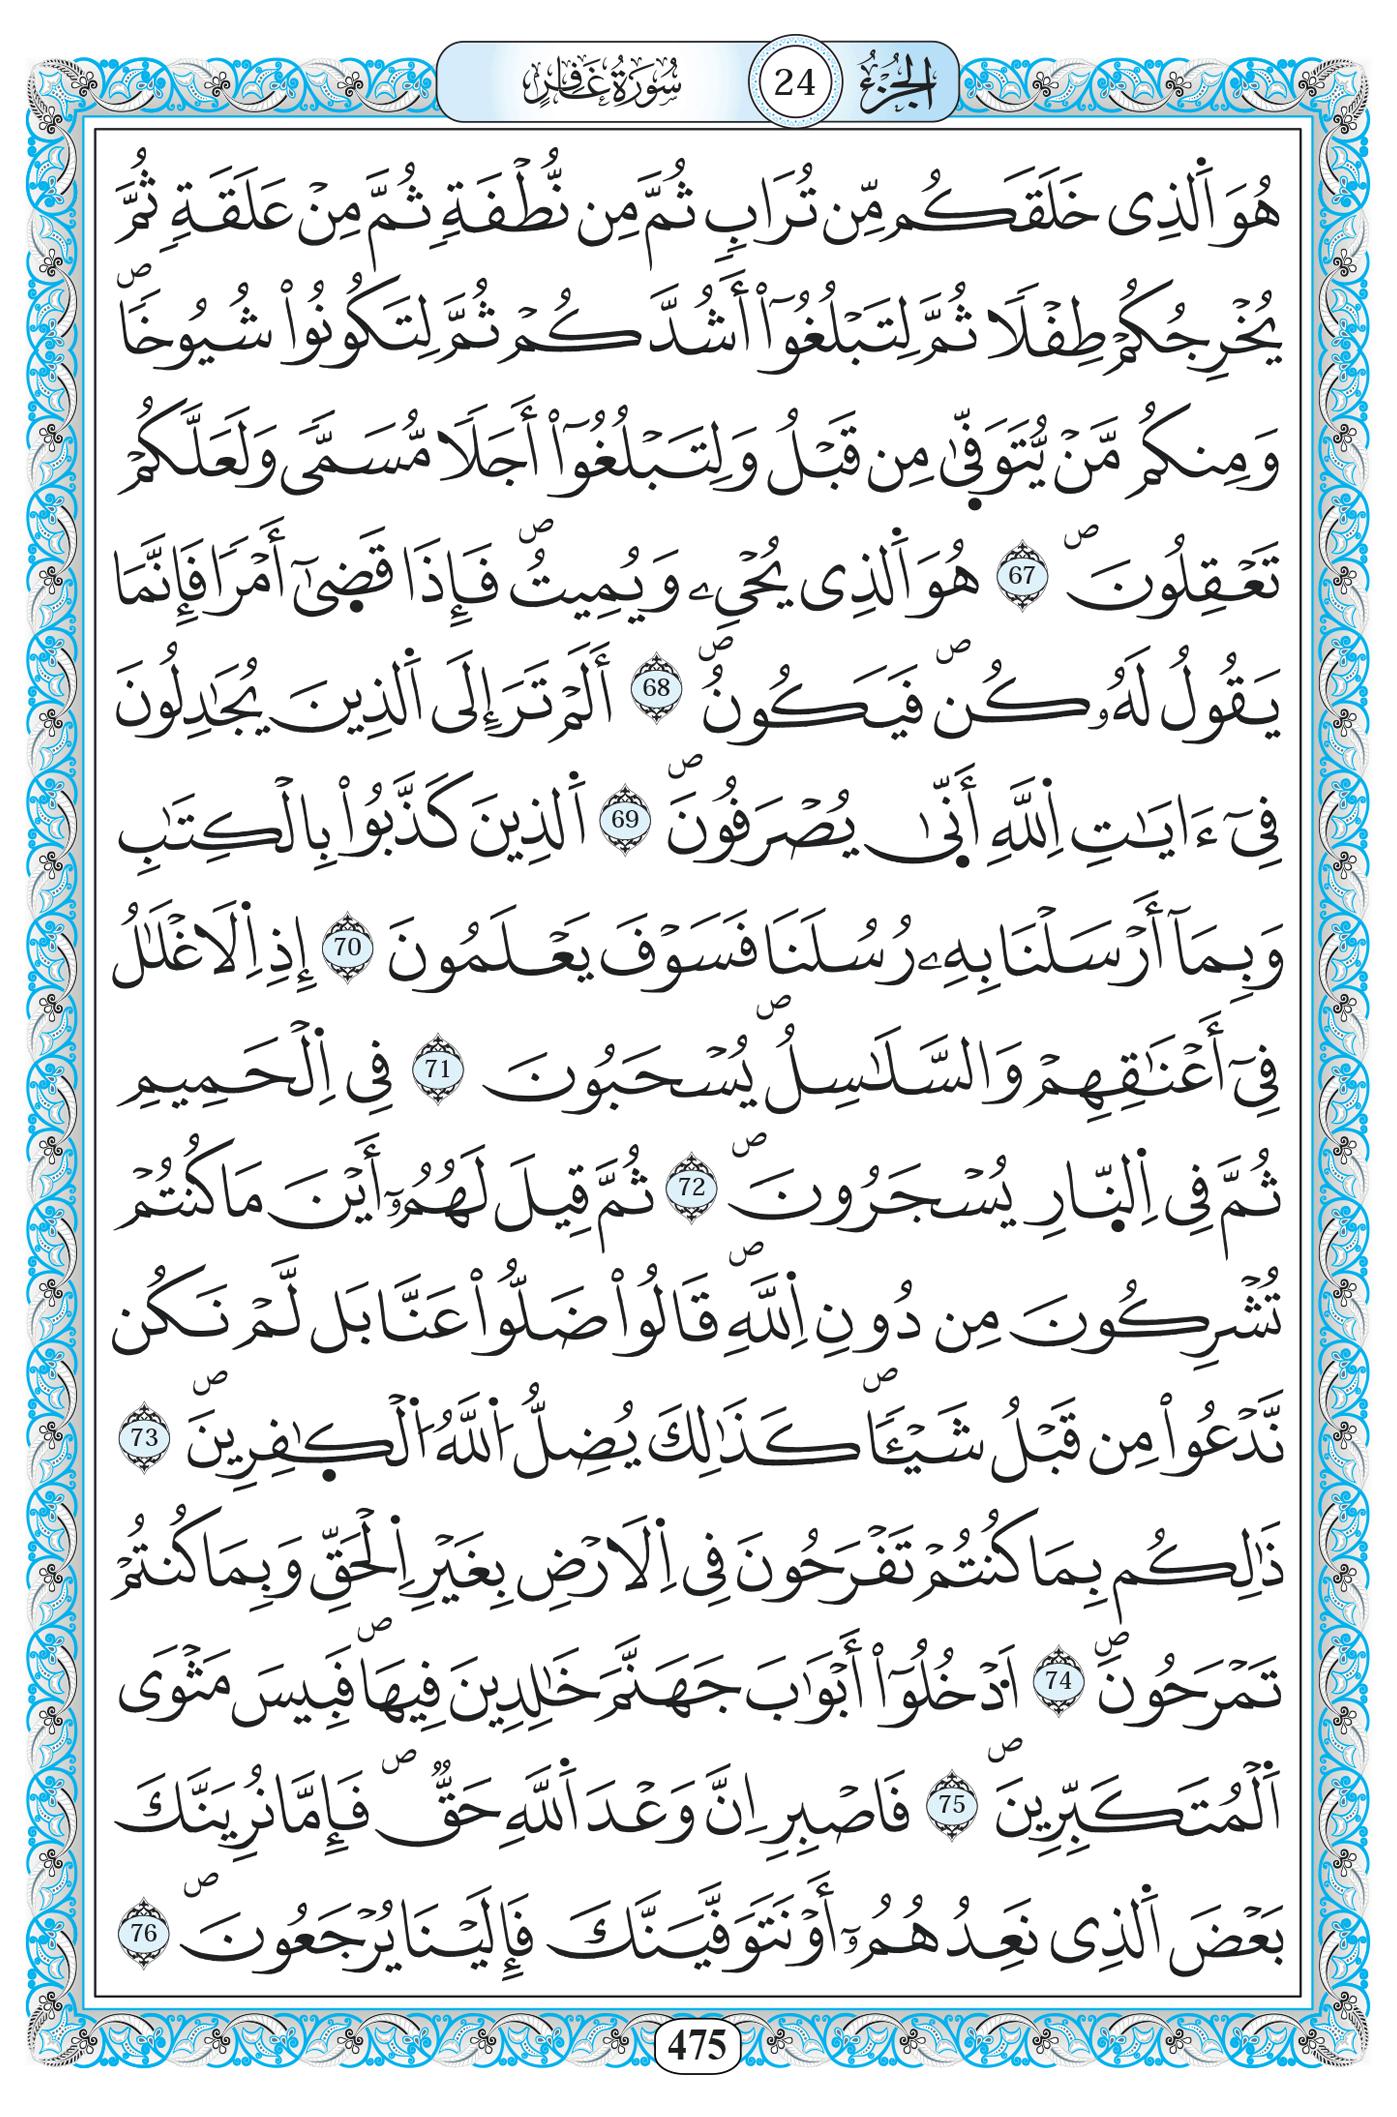 الجزء 24 سورة غافر
هُوَ اَلذِى خَلَقَكُم مِّن تُرَابٖ ثُمَّ مِن نُّطْفَةٖ ثُمَّ مِنْ عَلَقَةٖ ثُمَّ
يُخْرِجُكُمْ طِفْلٗا ثُمَّ لِتَبْلُغُوٓاْ أَشُدَّكُمْ ثُمَّ لِتَكُونُواْ شُيُوخاٗۖ
وَمِنكُم مَّنْ يُّتَوَفّ۪ىٰ مِن قَبْلُ وَلِتَبْلُغُوٓاْ أَجَلٗا مُّسَمّٗى وَلَعَلَّكُمْ
تَعْقِلُونَۖ 67 هُوَ اَلذِى يُحْيِۦ وَيُمِيتُۖ فَإِذَا قَض۪ىٰٓ أَمْرٗا فَإِنَّمَا
يَقُولُ لَهُۥ كُنۖ فَيَكُونُۖ 68 أَلَمْ تَرَ إِلَى اَلذِينَ يُجَٰدِلُونَ
فِىٓ ءَايَٰتِ اِ۬للَّهِ أَنّ۪ىٰ يُصْرَفُونَۖ 69 اَ۬لذِينَ كَذَّبُواْ بِالْكِتَٰبِ
وَبِمَآ أَرْسَلْنَا بِهِۦ رُسُلَنَا فَسَوْفَ يَعْلَمُونَ 70 إِذِ اِ۬لَاغْلَٰلُ
فِىٓ أَعْنَٰقِهِمْ وَالسَّلَٰسِلُۖ يُسْحَبُونَ 71 فِى اِ۬لْحَمِيمِ
ثُمَّ فِى اِ۬لنّ۪ارِ يُسْجَرُونَۖ 72 ثُمَّ قِيلَ لَهُمُۥٓ أَيْنَ مَا كُنتُمْ
تُشْرِكُونَ مِن دُونِ اِ۬للَّهِۖ قَالُواْ ضَلُّواْ عَنَّا بَل لَّمْ نَكُن
نَّدْعُواْ مِن قَبْلُ شَيْـٔاٗۖ كَذَٰلِكَ يُضِلُّ اُ۬للَّهُ اُ۬لْكٰ۪فِرِينَۖ 73
ذَٰلِكُم بِمَا كُنتُمْ تَفْرَحُونَ فِى اِ۬لَارْضِ بِغَيْرِ اِ۬لْحَقِّ وَبِمَا كُنتُمْ
تَمْرَحُونَۖ 74 اَ۟دْخُلُوٓاْ أَبْوَٰبَ جَهَنَّمَ خَٰلِدِينَ فِيهَاۖ فَبِيسَ مَثْوَى
اَ۬لْمُتَكَبِّرِينَۖ 75 فَاصْبِرِ اِنَّ وَعْدَ اَ۬للَّهِ حَقّٞۖ فَإِمَّا نُرِيَنَّكَ
بَعْضَ اَ۬لذِى نَعِدُهُمُۥٓ أَوْ نَتَوَفَّيَنَّكَ فَإِلَيْنَا يُرْجَعُونَۖ 76
475